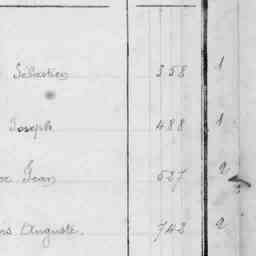 Sébastien 358 1
Joseph 488 1
Jean 527 2
Auguste. 742 2